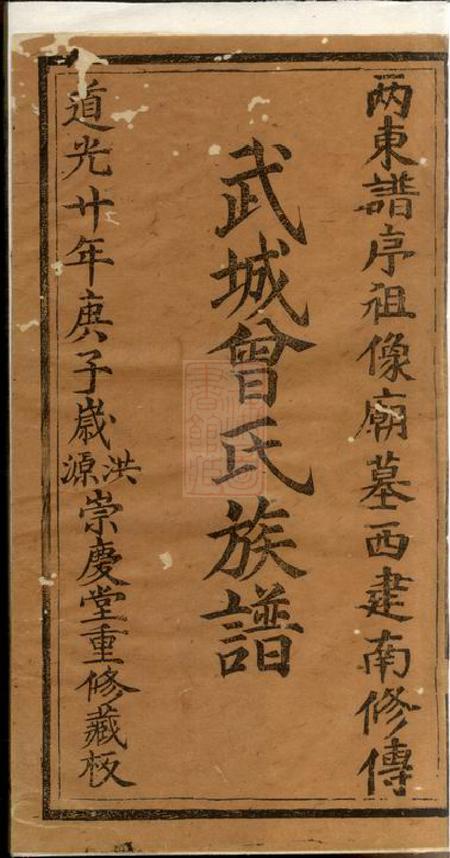 两東譜序祖像廟墓西建南修傳
武城曾氏族譜
道光廿年庚子歲洪源崇慶堂重修藏板